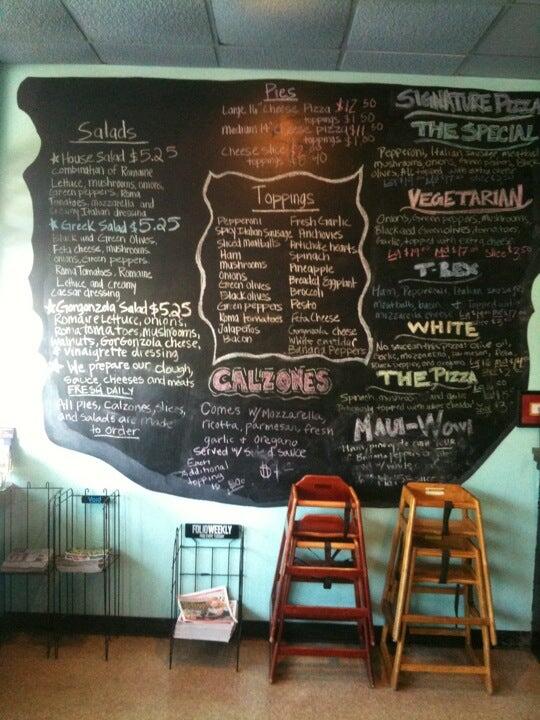 Salads
★ House Salad $5.25
combination of Romaine
Lettuce, mushrooms, onions,
Green peppers, Roma
Tomatoes, mozzarella, and
creamy Italian dressing
★ Greek Salad $5.25
Black and Green Olives,
Feta cheese, mushrooms,
onions, Green peppers,
Roma Tomatoes, Romaine
Lettuce and creamy
caesar dressing
★ Gorgonzola Salad $5.25
Romaine Lettuce, onions,
Roma tomatoes, mushrooms,
walnuts, Gorgonzola cheese,
+ Vinaigrette dressing
★ We prepare our dough,
sauce cheeses and meats
FRESH DAILY
All pies, Calzones, slices,
and salads are made
to order
Pies
Large 16" Cheese Pizza $12.50
toppings $1.50
medium 14" cheese pizza $11.50
toppings $1.00
cheese slice
toppings
Toppings
Pepperoni
Spicy Italian Sausage
Sliced meatballs
Ham
mushrooms
onions
Green olives
Black olives
Green peppers
Roma tomatoes
Jalapeños
Bacon
Fresh Garlic
Anchovies
Artichoke hearts
Spinach
Pineapple
Breaded Eggplant
Broccoli
Pesto
Feta Cheese
Gorgonzola cheese
White
Banana Peppers
CALZONES
Comes w/ Mozzarella,
ricotta, parmesan, fresh
garlic + oregano
Served w/ side of sauce
Each
Additional
topping
is
SIGNATURE PIZZA
THE SPECIAL
Pepperoni, Italian Sausage, meatballs,
mushrooms, onions,
olives, topped with extra cheese
VEGETARIAN
Onions, Green peppers, Mushrooms,
Black and Green olives, tomatoes,
Garlic, topped with extra cheese
T-REX
Ham, Pepperoni, Italian Sausage,
meatballs, bacon + topped w/
mozzarella cheese
WHITE
No sauce on this pizza! Olive oil,
mozzarella, parmesan, feta,
THE PIZZA
Spinach, mushrooms and garlic
MAUI-WOWI
Ham, pineapple
FOLIO WEEKLY